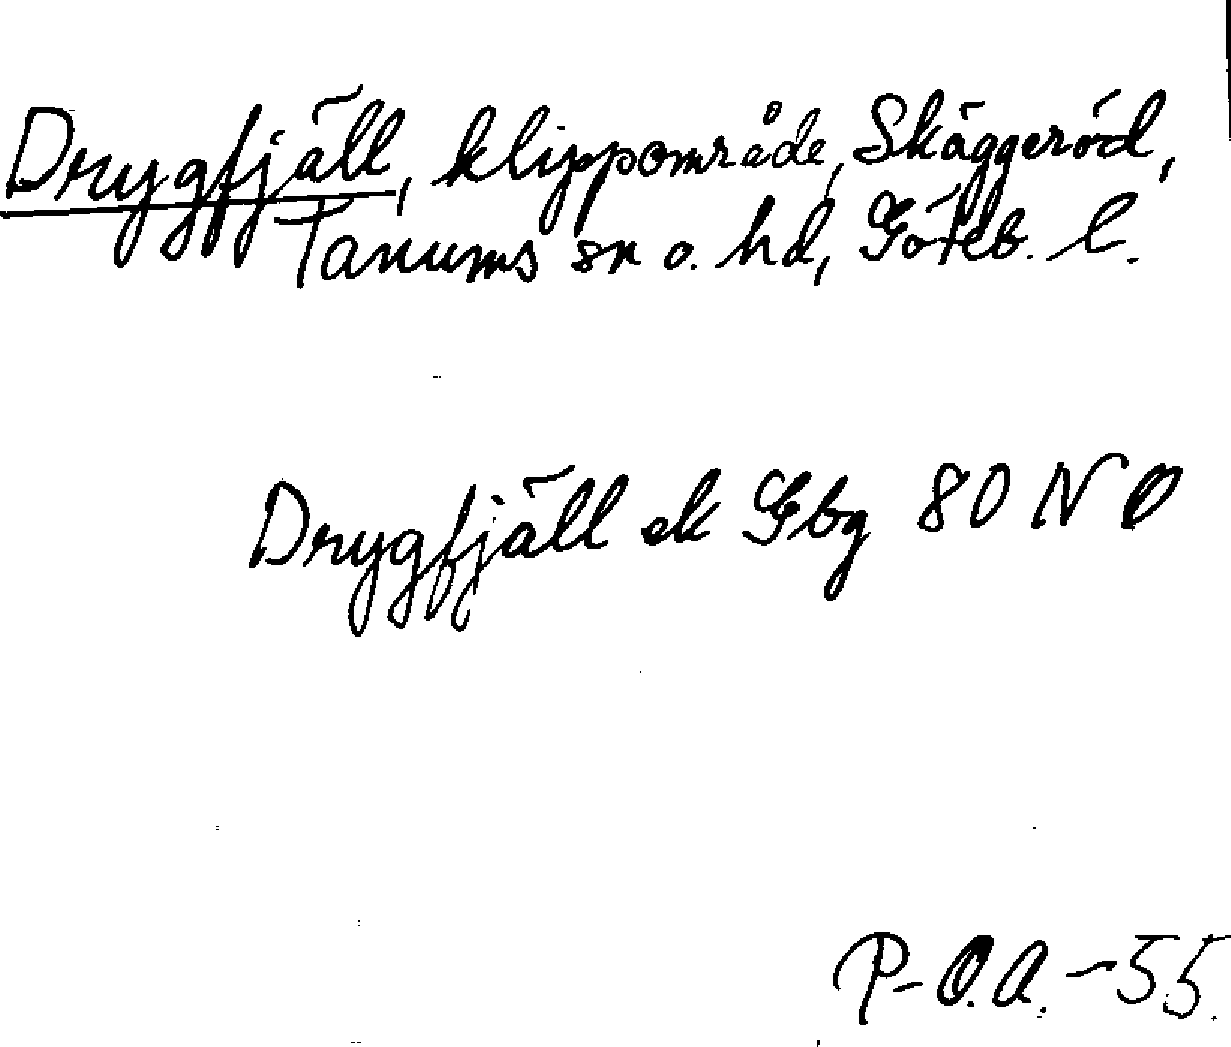 Drygfjäll, klippområde, Skäggeröd,
Tanums sn o. hd, Göteb. l.
Drygfjäll ek Gbg 80 NO
P-O.A. -55.